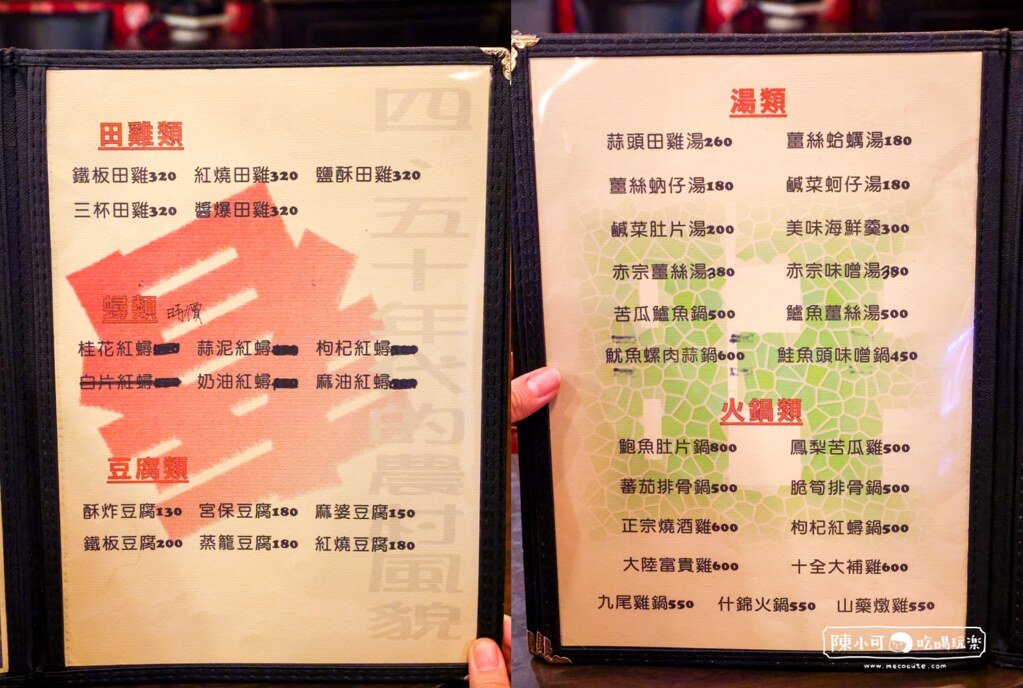 田雞類
鐵板田雞320 紅燒田雞320 鹽酥田雞320
三杯田雞320 醬爆田雞320
蟳類 時價
桂花紅蟳 蒜泥紅蟳 枸杞紅蟳
白片紅蟳 奶油紅蟳 麻油紅蟳
豆腐類
酥炸豆腐130 宮保豆腐180 麻婆豆腐150
鐵板豆腐200 蒸籠豆腐180 紅燒豆腐180
四、五十年代的農村風貌
湯類
蒜頭田雞湯260 薑絲蛤蠣湯180
薑絲蚋仔湯180 鹹菜蚵仔湯180
鹹菜肚片湯200 美味海鮮羹300
赤宗薑絲湯380 赤宗味噌湯380
苦瓜鱸魚鍋500 鱸魚薑絲湯500
魷魚螺肉蒜鍋600 鮭魚頭味噌鍋450
火鍋類
鮑魚肚片鍋800 鳳梨苦瓜雞500
蕃茄排骨鍋500 脆筍排骨鍋500
正宗燒酒雞600 枸杞紅蟳鍋500
大陸富貴雞600 十全大補雞600
九尾雞鍋550 什錦火鍋550 山藥燉雞550
陳小可 吃喝玩樂
www.mecocute.com